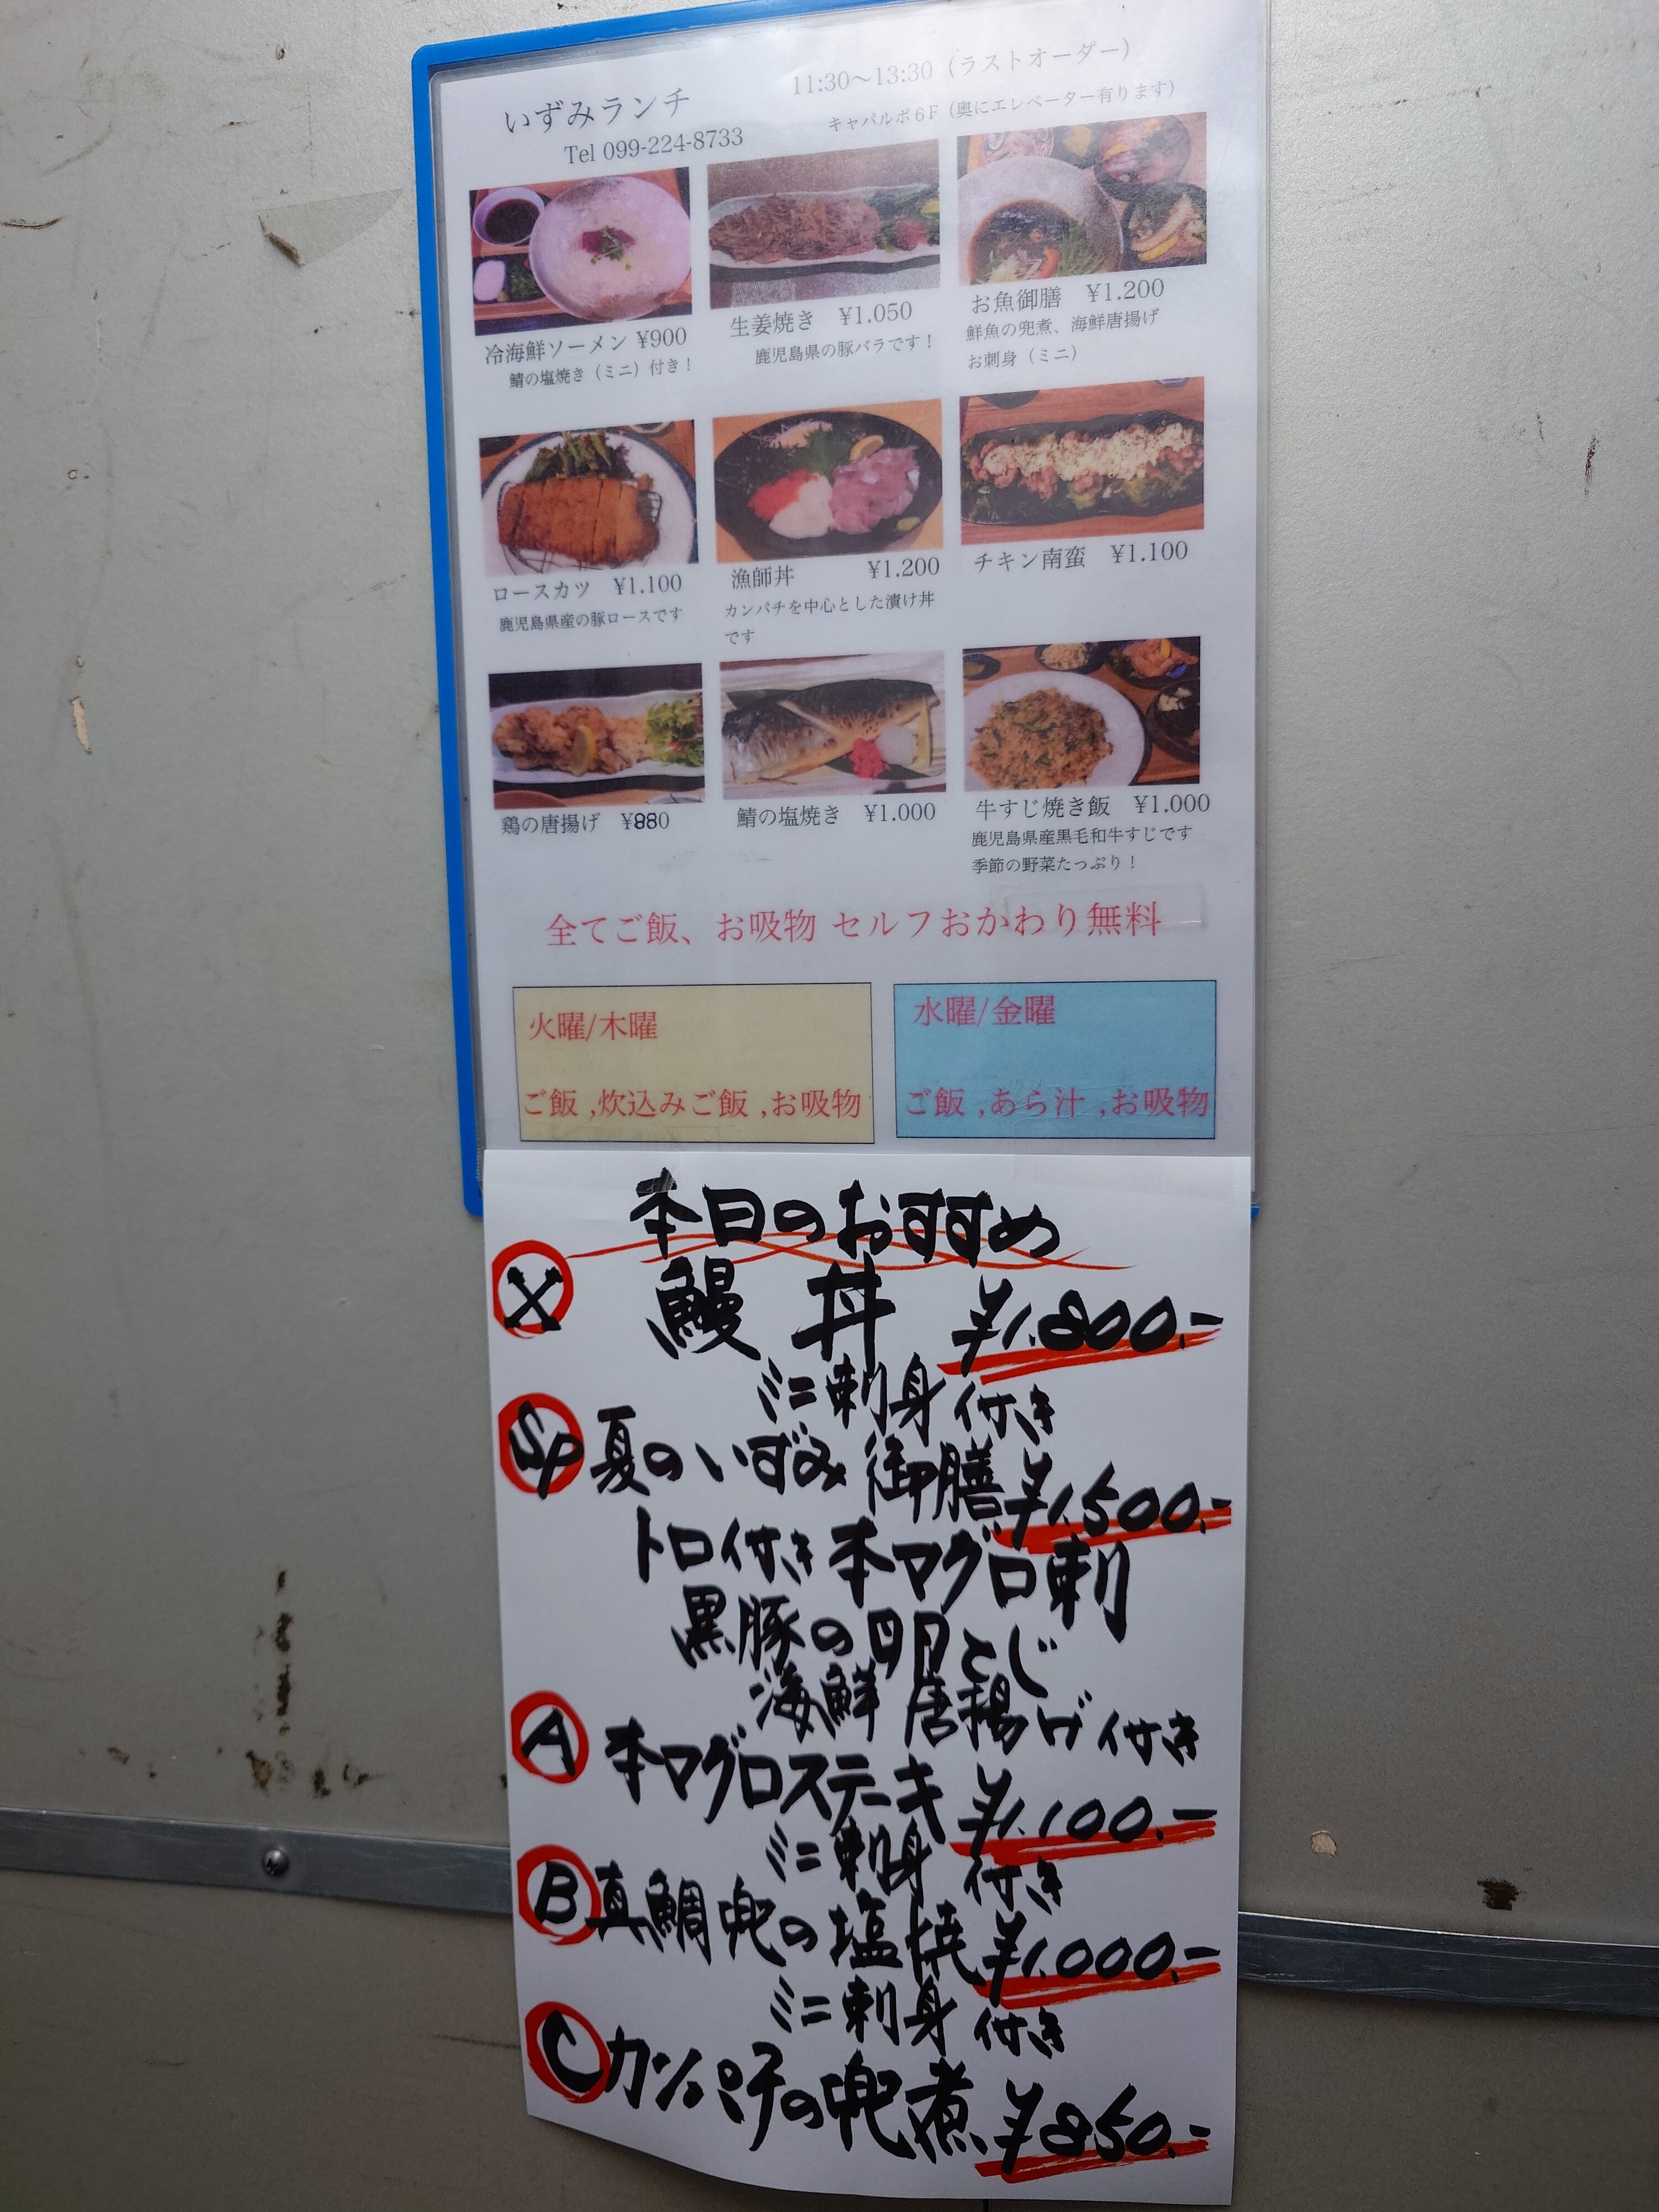 いずみランチ
11:30～13:30（ラストオーダー）
Tel 099-224-8733
キャパルボ６F（奥にエレベーター有ります）
冷海鮮ソーメン ¥900
鯖の塩焼き（ミニ）付き！
生姜焼き ¥1.050
鹿児島県の豚バラです！
お魚御膳 ¥1.200
鮮魚の兜煮、海鮮唐揚げ
お刺身（ミニ）
ロースカツ ¥1.100
鹿児島県産の豚ロースです
漁師丼 ¥1.200
カンパチを中心とした漬け丼
です
チキン南蛮 ¥1.100
鶏の唐揚げ ¥880
鯖の塩焼き ¥1.000
牛すじ焼き飯 ¥1.000
鹿児島県産黒毛和牛すじです
季節の野菜たっぷり！
全てご飯、お吸物 セルフおかわり無料
火曜/木曜
ご飯 ,炊込みご飯 ,お吸物
水曜/金曜
ご飯 ,あら汁 ,お吸物
本日のおすすめ
X 鰻丼 ¥1.800.-
ミニ刺身付き
Sp 夏のいずみ御膳 ¥1.500.-
トロ付き本マグロ刺
黒豚の卵とじ
海鮮唐揚げ付き
A 本マグロステーキ ¥1.100.-
ミニ刺身付き
B 真鯛兜の塩焼 ¥1.000.-
ミニ刺身付き
C カンパチの兜煮 ¥850.-